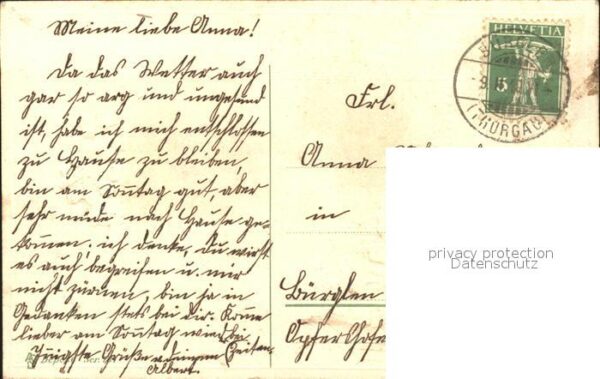 Meine liebe Anna!
Da das Wetter auch
gar so arg und ungesund
ist, habe ich mich entschlossen
zu Hause zu bleiben,
bin am Sonntag gut, aber
sehr müde nach Hause ge-
kommen. ich denke, du wirst
es auch begreifen u. mir
nicht zürnen, bin ja in
Gedanken stets bei dir. Komme
lieber am Sonntag wieder
Innigste Grüße
Albert.
HELVETIA
5
(THURGAU)
Frl.
Anna
in
Bürglen
privacy protection
Datenschutz